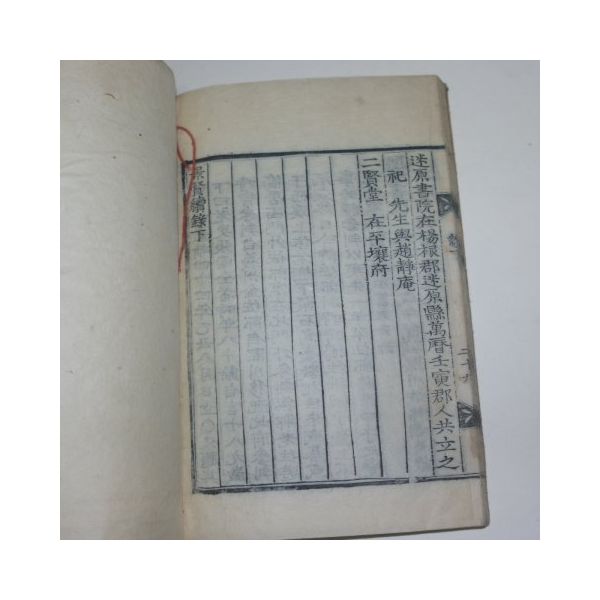 迷原書院在楊根郡迷原縣萬曆壬寅郡人共立之
祀 先生與趙靜庵
二賢堂 在平壤府
景賢續錄下